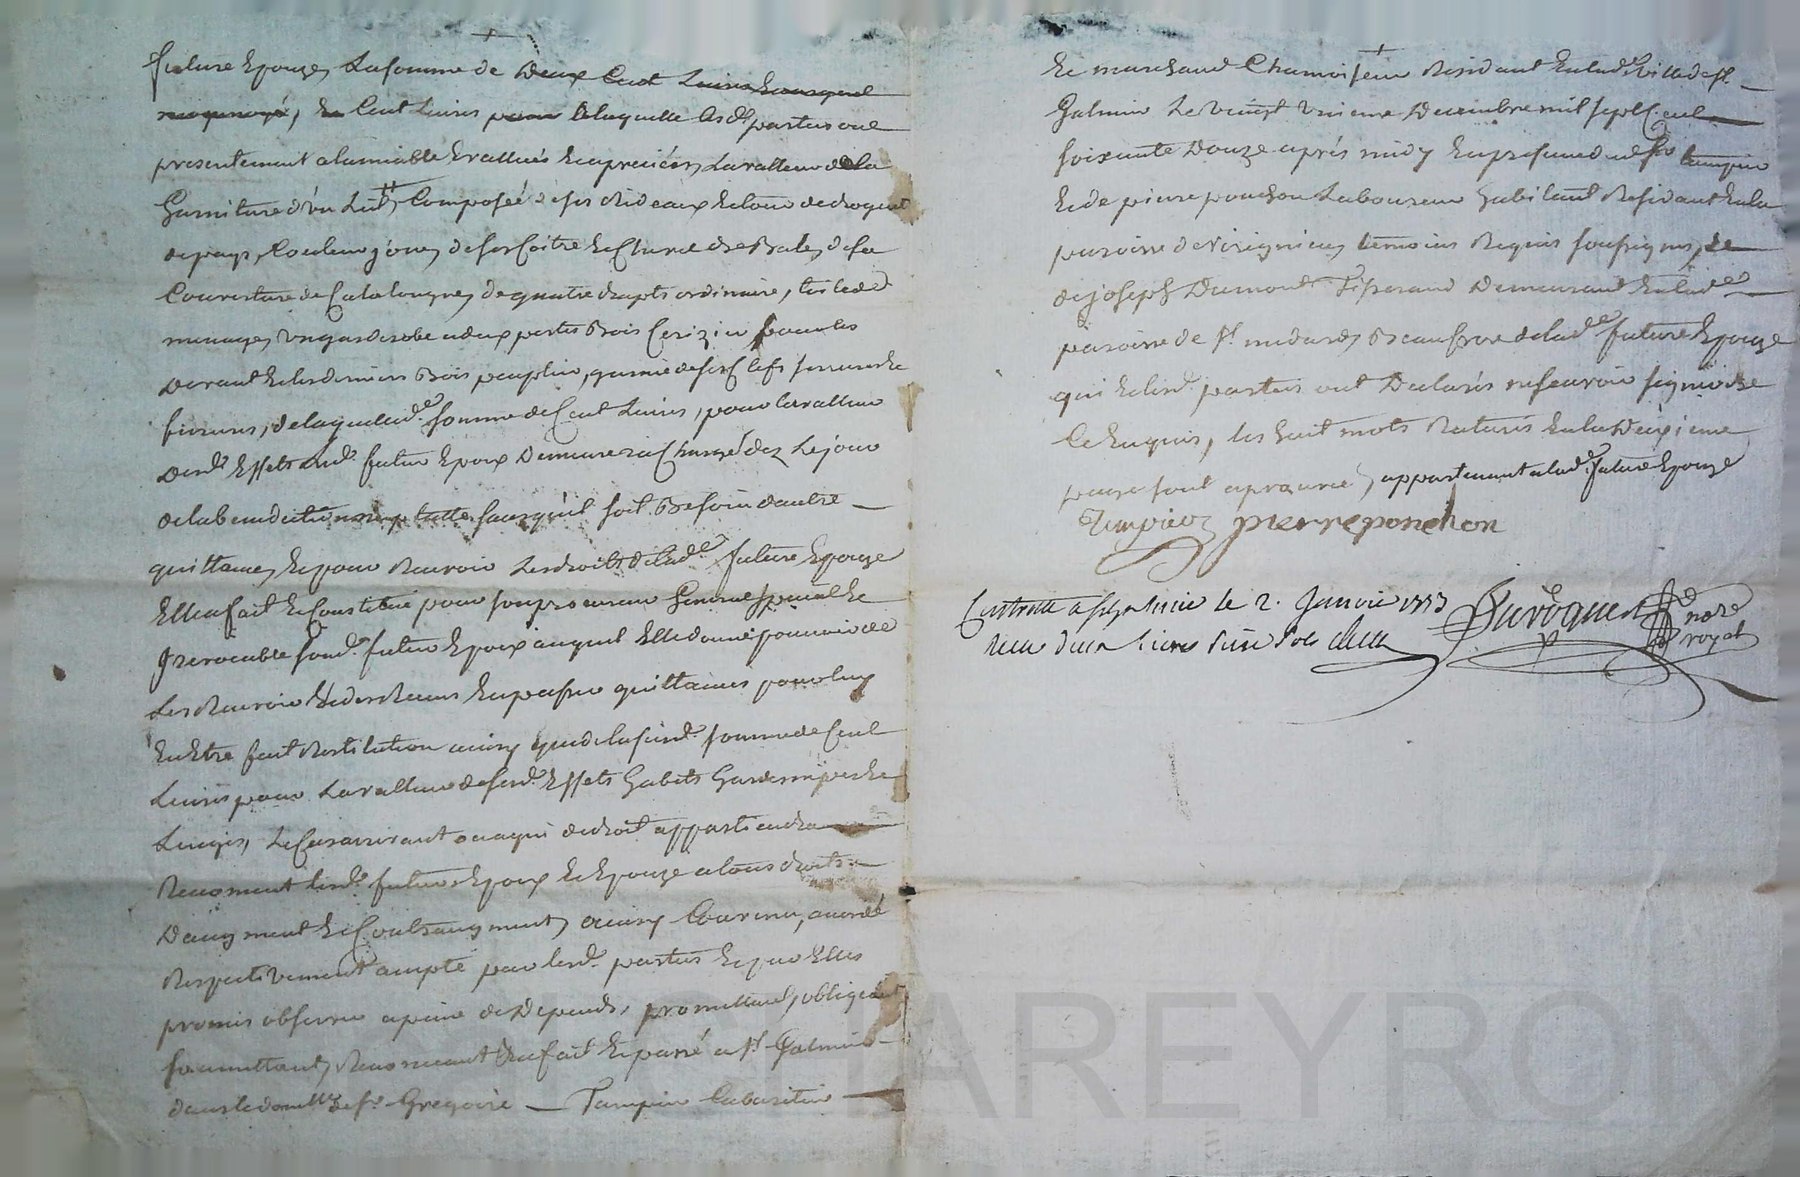 future Epouze, La somme de Deux Cent Livres
Cent Livres laquelle lesd. parties ont
presentement alamiable Evalluée Et apreciée, La valleur de la
Garniture d'un Lit, Composée de ses Rideaux Et tour de droguet
depays, Couleur jône, de sa Coitre de Bale, de sa
Couverture de Catalongne, de quatre draps ordinaire, toile de
menage, un garderobe a deux portes Bois Cerizier pour les
Devant Et les derniers Bois peuplier, garnie de ses Clefs serrure Et
ferrures, de laquelle d.e somme de Cent Livres, pour la valleur
Desd. Effets led. futur Epoux Demeurera Chargé dez Le jour
dela benediction nuptialle sans qu'il soit Besoin dautre
quittance, Et pour Recevoir Les droits de lad.e future Epouze
Elle a fait Et Constitué pour son procureur General special Et
Irrevocable sond. futur Epoux auquel Elle donne pouvoir de
Les Recevoir Et En passer quittances pour luy
En Etre fait Restitution ainsy que de la susd. somme de Cent
Livres pour La valleur de sesd. Effets habits Gardenipes Et
Linges, Le Cas arrivant ou a qui de droit appartiendra
Renoncent lesd. futurs Epoux Et Epouze a tous droits
Daugment Et Contraugment, ainsy Convenu, accordé
Respectivement accepté par lesd. parties Et par Elles
promis observer a peine de Depends, promettant, obligeant
soumettant, Renonceant fait Et passé a St. Galmier
dans le domille de Sr. Gregoire — Tampier Cabaretier
Et marchand Chamoiseur Residant En lad.e ville de St.
Galmier Le vingt unieme Decembre mil sept Cent
soixante Douze après midy En presence dud. Sr. tampier
Et de pierre ponchon Laboureur habitant Residant En la
paroisse de Virignieu, temoins Requis soussignés,
de joseph Dumont Tisserand Demeurant En lad.e
paroisse de St. medard, Beaufrere de lad.e future Epouze
qui Et lesd. parties ont Declarés ne sçavoir signer de
Ce Enquis, les huit mots Raturés En la Deuxieme
page sont aprouvés, appartenant a lad.e future Epouze
Tampier pierre ponchon
Controllé a St galmier le 2. Janvier 1773
Reçu deux livres sols
not.re
royal
CHAREYRON